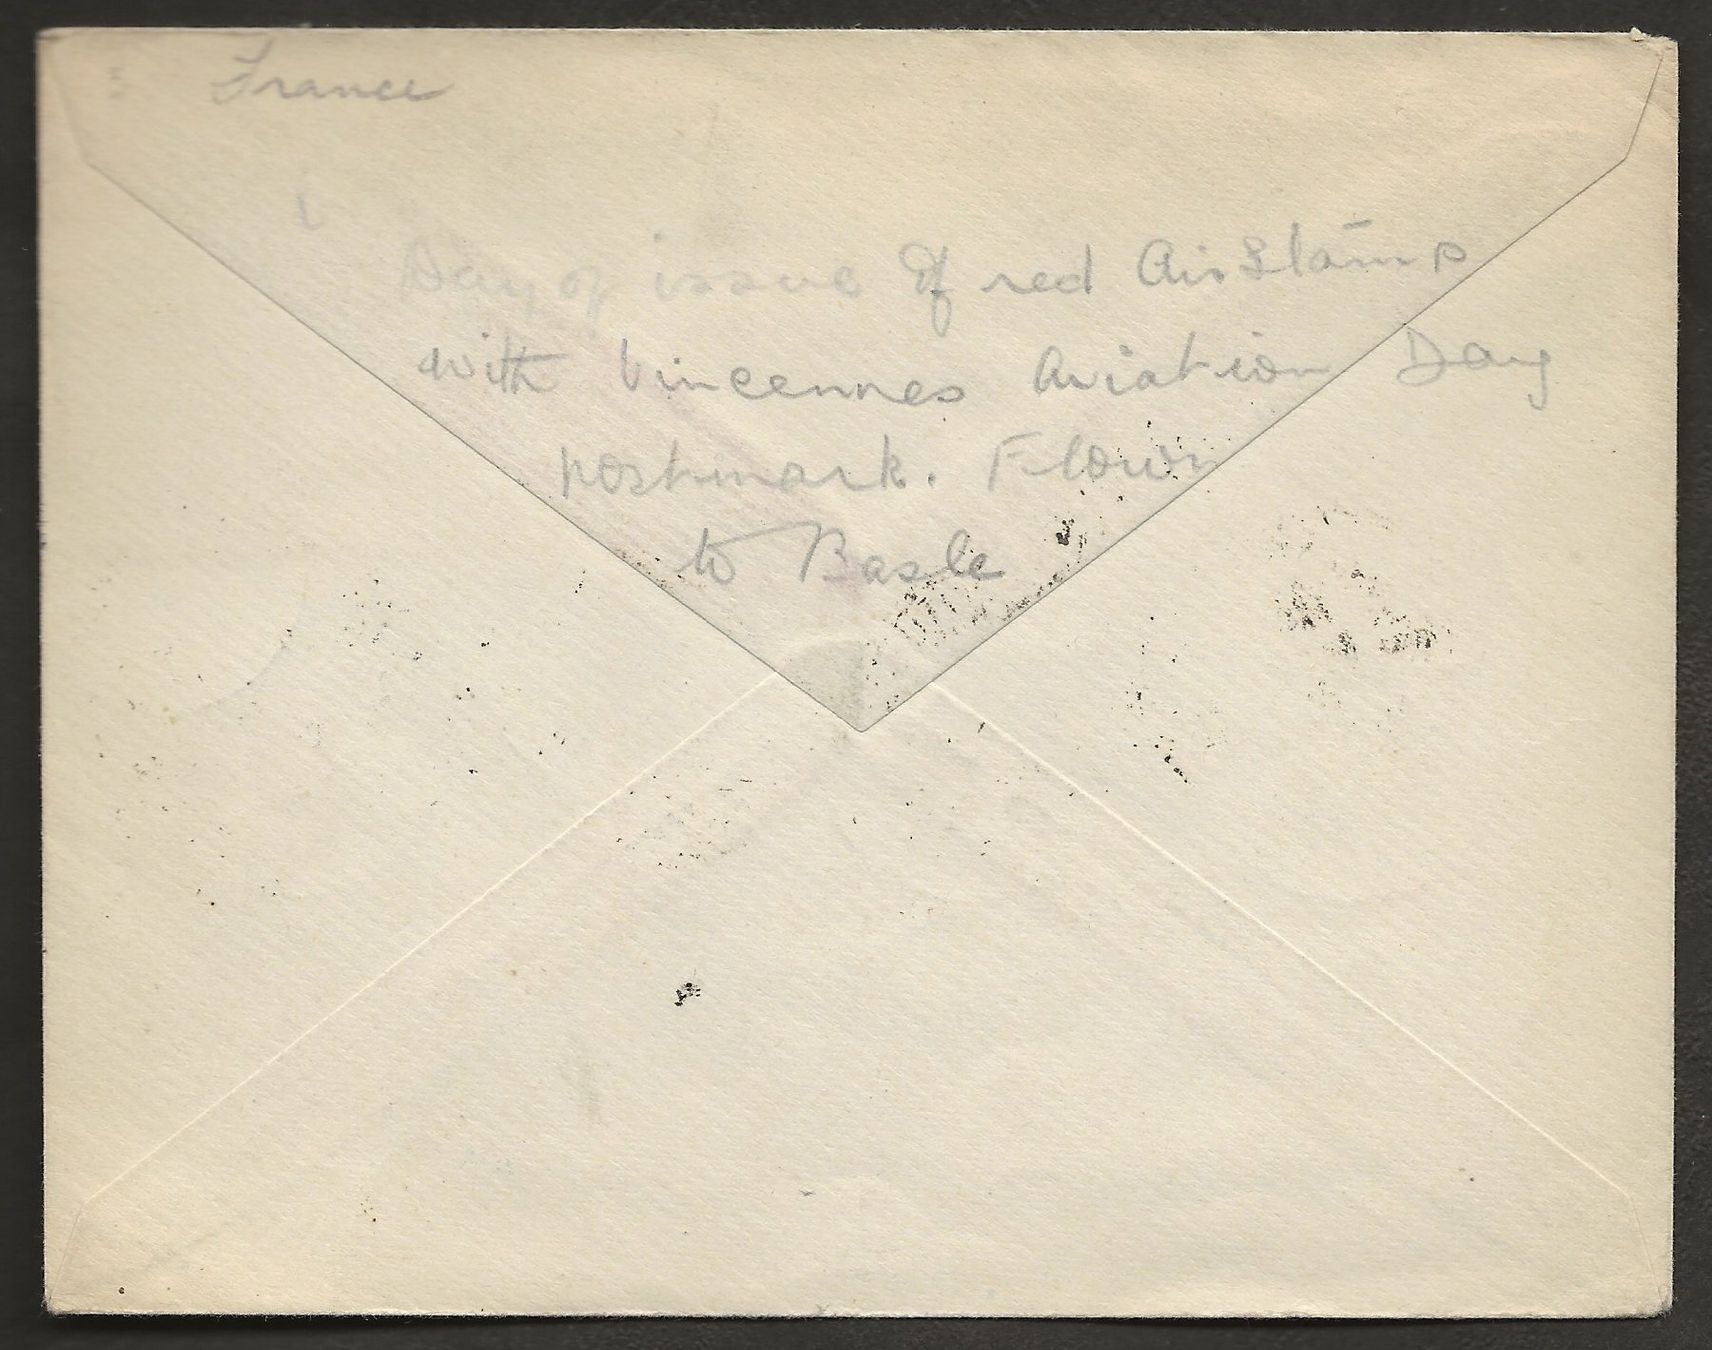 France
Day of issue of red Air Stamps
with Vincennes Aviation Day
postmark. Flown
to Basle